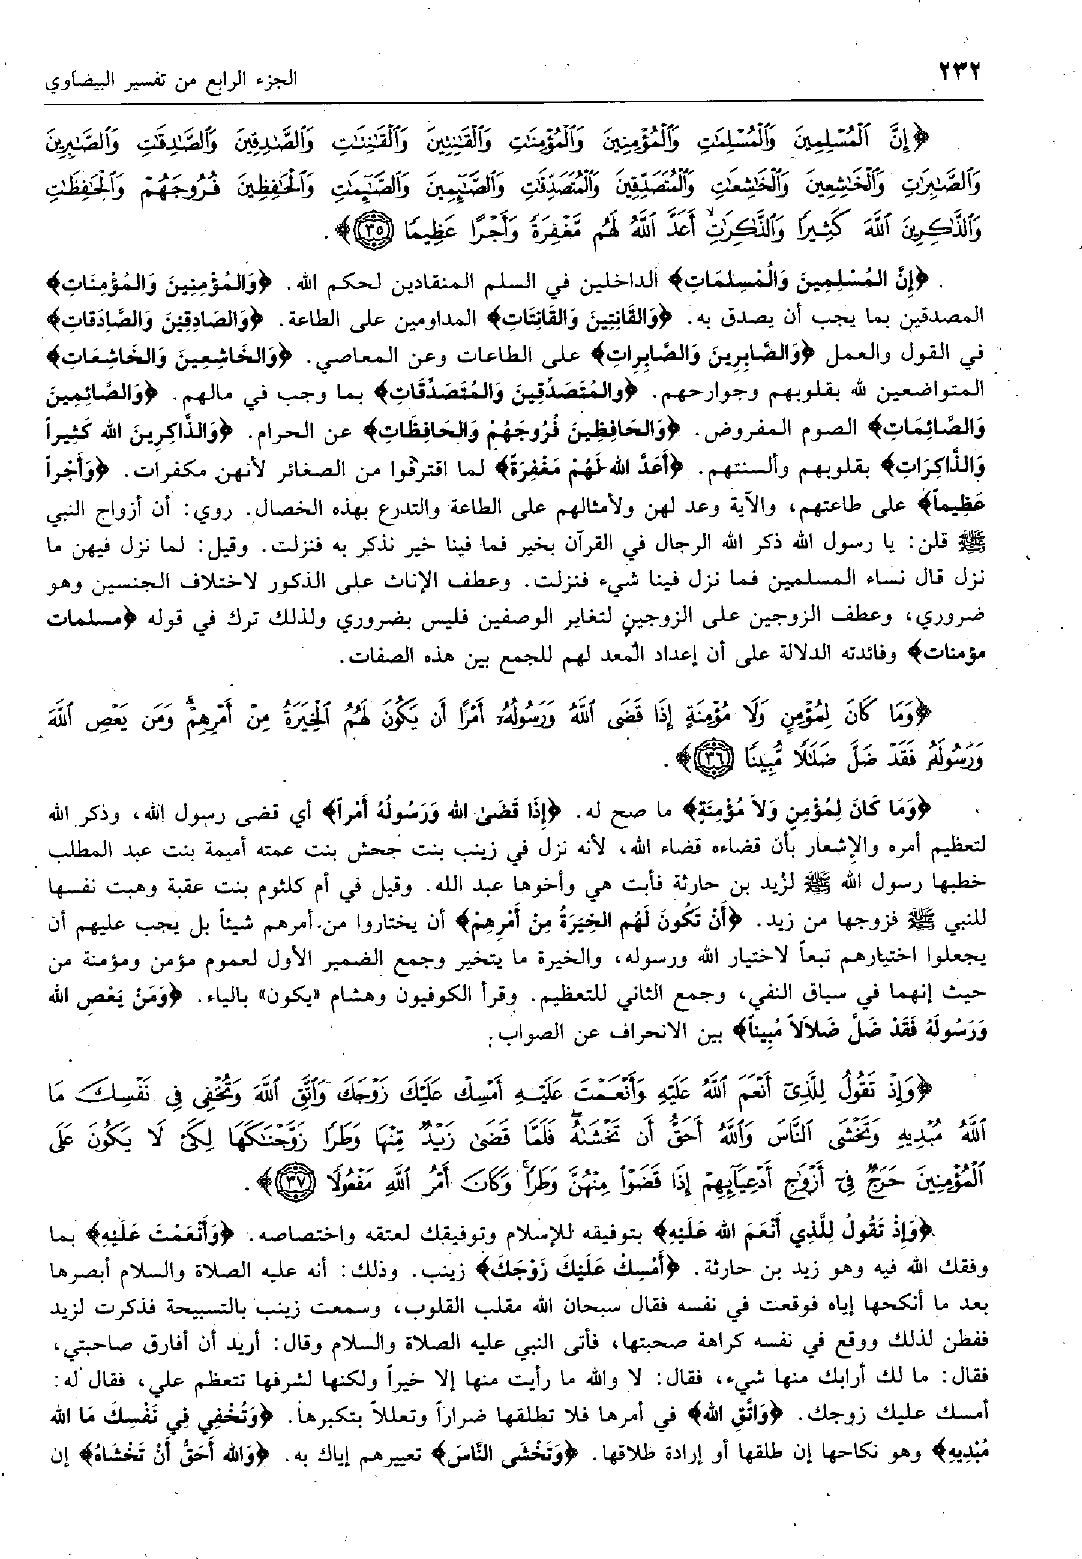 ٢٣٢
الجزء الرابع من تفسير البيضاوي
﴿إِنَّ ٱلْمُسْلِمِينَ وَٱلْمُسْلِمَٰتِ وَٱلْمُؤْمِنِينَ وَٱلْمُؤْمِنَٰتِ وَٱلْقَٰنِتِينَ وَٱلْقَٰنِتَٰتِ وَٱلصَّٰدِقِينَ وَٱلصَّٰدِقَٰتِ وَٱلصَّٰبِرِينَ
وَٱلصَّٰبِرَٰتِ وَٱلْخَٰشِعِينَ وَٱلْخَٰشِعَٰتِ وَٱلْمُتَصَدِّقِينَ وَٱلْمُتَصَدِّقَٰتِ وَٱلصَّٰٓئِمِينَ وَٱلصَّٰٓئِمَٰتِ وَٱلْحَٰفِظِينَ فُرُوجَهُمْ وَٱلْحَٰفِظَٰتِ
وَٱلذَّٰكِرِينَ ٱللَّهَ كَثِيرًا وَٱلذَّٰكِرَٰتِ أَعَدَّ ٱللَّهُ لَهُم مَّغْفِرَةً وَأَجْرًا عَظِيمًا ﴿٣٥﴾﴾.
﴿إِنَّ المُسْلِمِينَ وَالْمُسْلِمَاتِ﴾ الداخلين في السلم المنقادين لحكم الله. ﴿وَالمُؤْمِنِينَ وَالمُؤْمِنَاتِ﴾
المصدقين بما يجب أن يصدق به. ﴿وَالقَانِتِينَ وَالقَانِتَاتِ﴾ المداومين على الطاعة. ﴿وَالصَادِقِيْنَ وَالصَّادَقَاتِ﴾
في القول والعمل ﴿وَالصَّابِرِينَ وَالصَّابِرَاتِ﴾ على الطاعات وعن المعاصي. ﴿وَالخَاشِعِينَ وَالخَاشِعَاتِ﴾
المتواضعين لله بقلوبهم وجوارحهم. ﴿والمُتَصَدِّقِينَ وَالمُتَصَدِّقَاتِ﴾ بما وجب في مالهم. ﴿وَالصَّائِمِينَ
وَالصَّائِمَاتِ﴾ الصوم المفروض. ﴿وَالحَافِظِينَ فُرُوجَهُمْ وَالحَافِظَاتِ﴾ عن الحرام. ﴿وَالذَّاكِرِينَ الله كَثِيراً
وَالذَّاكِرَاتِ﴾ بقلوبهم وألسنتهم. ﴿أَعَدَّ الله لَهُمْ مَغْفِرَةً﴾ لما اقترفوا من الصغائر لأنهن مكفرات. ﴿وَأَجْراً
عَظِيماً﴾ على طاعتهم، والآية وعد لهن ولأمثالهم على الطاعة والتدرع بهذه الخصال. روي: أن أزواج النبي
ﷺ قلن: يا رسول الله ذكر الله الرجال في القرآن بخير فما فينا خير نذكر به فنزلت. وقيل: لما نزل فيهن ما
نزل قال نساء المسلمين فما نزل فينا شيء فنزلت. وعطف الإناث على الذكور لاختلاف الجنسين وهو
ضروري، وعطف الزوجين على الزوجين لتغاير الوصفين فليس بضروري ولذلك ترك في قوله ﴿مسلمات
مؤمنات﴾ وفائدته الدلالة على أن إعداد المعد لهم للجمع بين هذه الصفات.
﴿وَمَا كَانَ لِمُؤْمِنٍ وَلَا مُؤْمِنَةٍ إِذَا قَضَى ٱللَّهُ وَرَسُولُهُۥٓ أَمْرًا أَن يَكُونَ لَهُمُ ٱلْخِيَرَةُ مِنْ أَمْرِهِمْ وَمَن يَعْصِ ٱللَّهَ
وَرَسُولَهُۥ فَقَدْ ضَلَّ ضَلَٰلًا مُّبِينًا ﴿٣٦﴾﴾.
﴿وَمَا كَانَ لِمُؤْمِنٍ وَلاَ مُؤْمِنَةٍ﴾ ما صح له. ﴿إِذَا قَضَىٰ الله وَرَسُولُهُ أَمْراً﴾ أي قضى رسول الله، وذكر الله
لتعظيم أمره والإِشعار بأن قضاءه قضاء الله، لأنه نزل في زينب بنت جحش بنت عمته أميمة بنت عبد المطلب
خطبها رسول الله ﷺ لزيد بن حارثة فأبت هي وأخوها عبد الله. وقيل في أم كلثوم بنت عقبة وهبت نفسها
للنبي ﷺ فزوجها من زيد. ﴿أَنْ تَكُونَ لَهُم الخِيَرَةُ مِنْ أَمْرِهِمْ﴾ أن يختاروا من أمرهم شيئاً بل يجب عليهم أن
يجعلوا اختيارهم تبعاً لاختيار الله ورسوله، والخيرة ما يتخير وجمع الضمير الأول لعموم مؤمن ومؤمنة من
حيث إنهما في سياق النفي، وجمع الثاني للتعظيم. وقرأ الكوفيون وهشام «يكون» بالياء. ﴿وَمَنْ يَعْصِ الله
وَرَسُولَهُ فَقَدْ ضَلَّ ضَلاَلاً مُبِيناً﴾ بين الانحراف عن الصواب.
﴿وَإِذْ تَقُولُ لِلَّذِىٓ أَنْعَمَ ٱللَّهُ عَلَيْهِ وَأَنْعَمْتَ عَلَيْهِ أَمْسِكْ عَلَيْكَ زَوْجَكَ وَٱتَّقِ ٱللَّهَ وَتُخْفِى فِى نَفْسِكَ مَا
ٱللَّهُ مُبْدِيهِ وَتَخْشَى ٱلنَّاسَ وَٱللَّهُ أَحَقُّ أَن تَخْشَىٰهُ فَلَمَّا قَضَىٰ زَيْدٌ مِّنْهَا وَطَرًا زَوَّجْنَٰكَهَا لِكَىْ لَا يَكُونَ عَلَى
ٱلْمُؤْمِنِينَ حَرَجٌ فِىٓ أَزْوَٰجِ أَدْعِيَآئِهِمْ إِذَا قَضَوْا۟ مِنْهُنَّ وَطَرًا وَكَانَ أَمْرُ ٱللَّهِ مَفْعُولًا ﴿٣٧﴾﴾.
﴿وَإِذْ تَقُولُ لِلَّذِي أَنْعَمَ الله عَلَيْهِ﴾ بتوفيقه للإسلام وتوفيقك لعتقه واختصاصه. ﴿وَأَنْعَمْتَ عَلَيْهِ﴾ بما
وفقك الله فيه وهو زيد بن حارثة. ﴿أَمْسِكْ عَلَيْكَ زَوْجَكَ﴾ زينب. وذلك: أنه عليه الصلاة والسلام أبصرها
بعد ما أنكحها إياه فوقعت في نفسه فقال سبحان الله مقلب القلوب، وسمعت زينب بالتسبيحة فذكرت لزيد
ففطن لذلك ووقع في نفسه كراهة صحبتها، فأتى النبي عليه الصلاة والسلام وقال: أريد أن أفارق صاحبتي،
فقال: ما لك أرابك منها شيء، فقال: لا والله ما رأيت منها إلا خيراً ولكنها لشرفها تتعظم علي، فقال له:
أمسك عليك زوجك. ﴿وَاتَّقِ الله﴾ في أمرها فلا تطلقها ضراراً وتعللاً بتكبرها. ﴿وَتُخْفِي فِي نَفْسِكَ مَا الله
مُبْدِيهِ﴾ وهو نكاحها إن طلقها أو إرادة طلاقها. ﴿وَتَخْشَى النَّاسَ﴾ تعييرهم إياك به. ﴿وَالله أَحَقُّ أَنْ تَخْشَاهُ﴾ إن